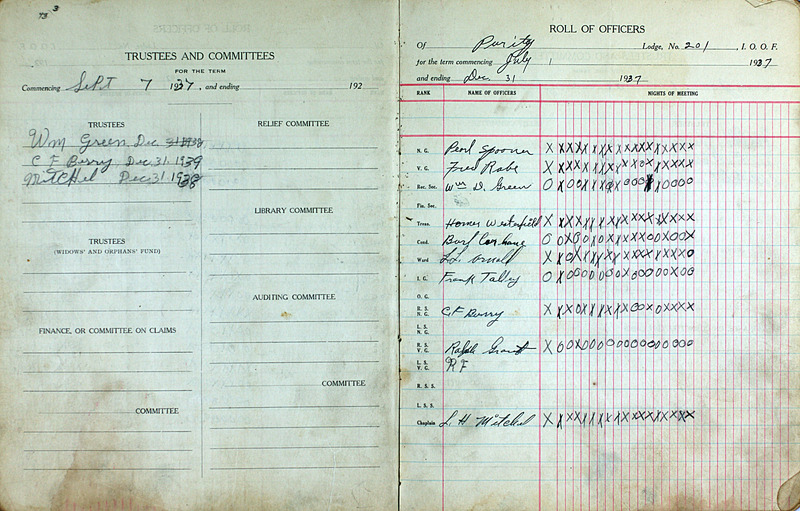 3
73
TRUSTEES AND COMMITTEES
FOR THE TERM
Commencing Sept 7 1937, and ending 192
TRUSTEES
Wm Green Dec
C F Berry Dec. 31. 1939
Mitchel Dec 31 1938
TRUSTEES
(WIDOWS' AND ORPHANS' FUND)
FINANCE, OR COMMITTEE ON CLAIMS
COMMITTEE
RELIEF COMMITTEE
LIBRARY COMMITTEE
AUDITING COMMITTEE
COMMITTEE
ROLL OF OFFICERS
Of Purity Lodge, No. 201, I. O. O. F.
for the term commencing July 1 1937
and ending Dec. 31 1937
RANK NAME OF OFFICERS NIGHTS OF MEETING
N. G. Pearl Spooner
V. G. Fred Rabe
Rec. Sec. Wm D. Green
Fin. Sec.
Treas. Homer Westerfield
Cond.
Ward
I. G. Frank Talley
O. G.
R. S. N. G. C F Berry
L. S. N. G.
R. S. V. G. Ralph Grant
L. S. V. G. R F
R. S. S.
L. S. S.
Chaplain L. H Mitchel